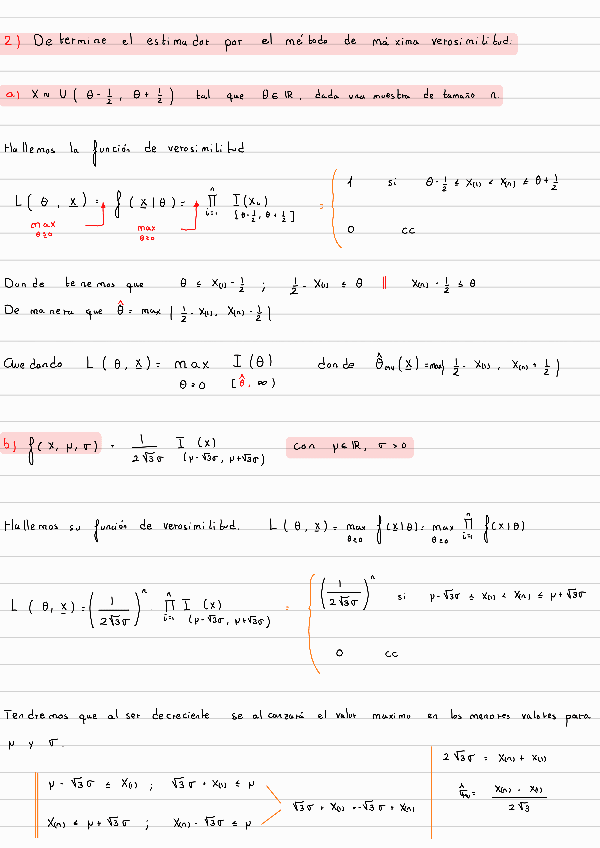 2) Determine el estimador por el método de máxima verosimilitud.
a) X ~ U ( θ - 1/2 , θ + 1/2 ) tal que θ ∈ ℝ, dada una muestra de tamaño n.
Hallemos la función de verosimilitud
L ( θ , x ) = f ( x | θ ) = ∏_{i=1}^{n} I(x_i)_{[θ-1/2, θ+1/2]} = { 1 si θ - 1/2 ≤ X(1) < X(n) ≤ θ + 1/2
max θ≥0 max θ≥0
0 cc
Donde tenemos que θ ≤ X(1) - 1/2 ; 1/2 - X(1) ≤ θ || X(n) - 1/2 ≤ θ
De manera que θ̂ = max { 1/2 - X(1), X(n) - 1/2 }
Quedando L ( θ, x ) = max_{θ≥0} I(θ)_{[θ̂, ∞)} donde θ̂_{mv} (x) = max{ 1/2 - X(1) , X(n) + 1/2 }
b) f(x, μ, σ) = 1/(2√3σ) I(x)_{(μ-√3σ, μ+√3σ)} con μ ∈ ℝ, σ > 0
Hallemos su función de verosimilitud. L ( θ, x ) = max_{θ≥0} f(x|θ) = max_{θ≥0} ∏_{i=1}^{n} f(x|θ)
L ( θ, x ) = (1/(2√3σ))^n ∏_{i=1}^{n} I(x)_{(μ-√3σ, μ+√3σ)} = { (1/(2√3σ))^n si μ-√3σ ≤ X(1) < X(n) ≤ μ+√3σ
0 cc
Tendremos que al ser decreciente se alcanzará el valor maximo en los menores valores para
μ y σ.
μ - √3σ ≤ X(1) ; √3σ + X(1) ≤ μ
X(n) ≤ μ+√3σ ; X(n) - √3σ ≤ μ
√3σ + X(1) = -√3σ + X(n)
2√3σ = X(n) + X(1)
σ̂_{mv} = (X(n) - X(1)) / 2√3